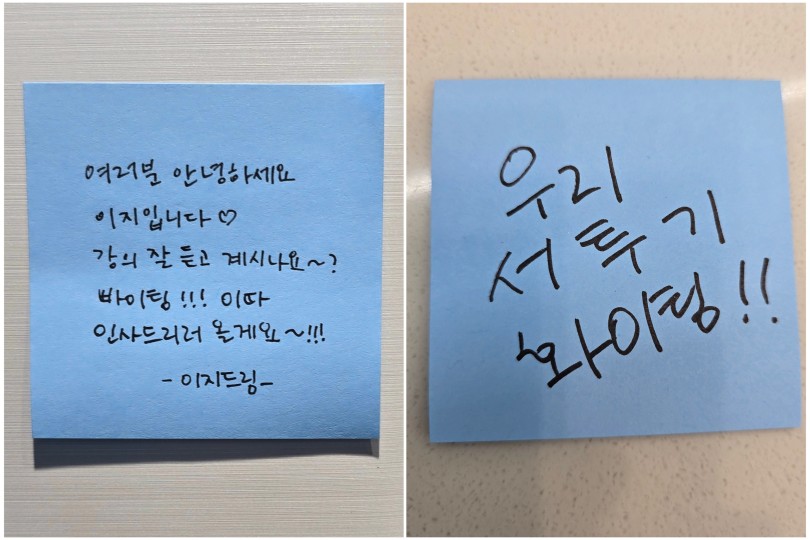 여러분 안녕하세요
이지입니다♡
강의 잘 듣고 계시나요~?
빠이팅!!! 이따
인사드리러 올게요~!!!
-이지드림-
우리
서투기
화이팅!!